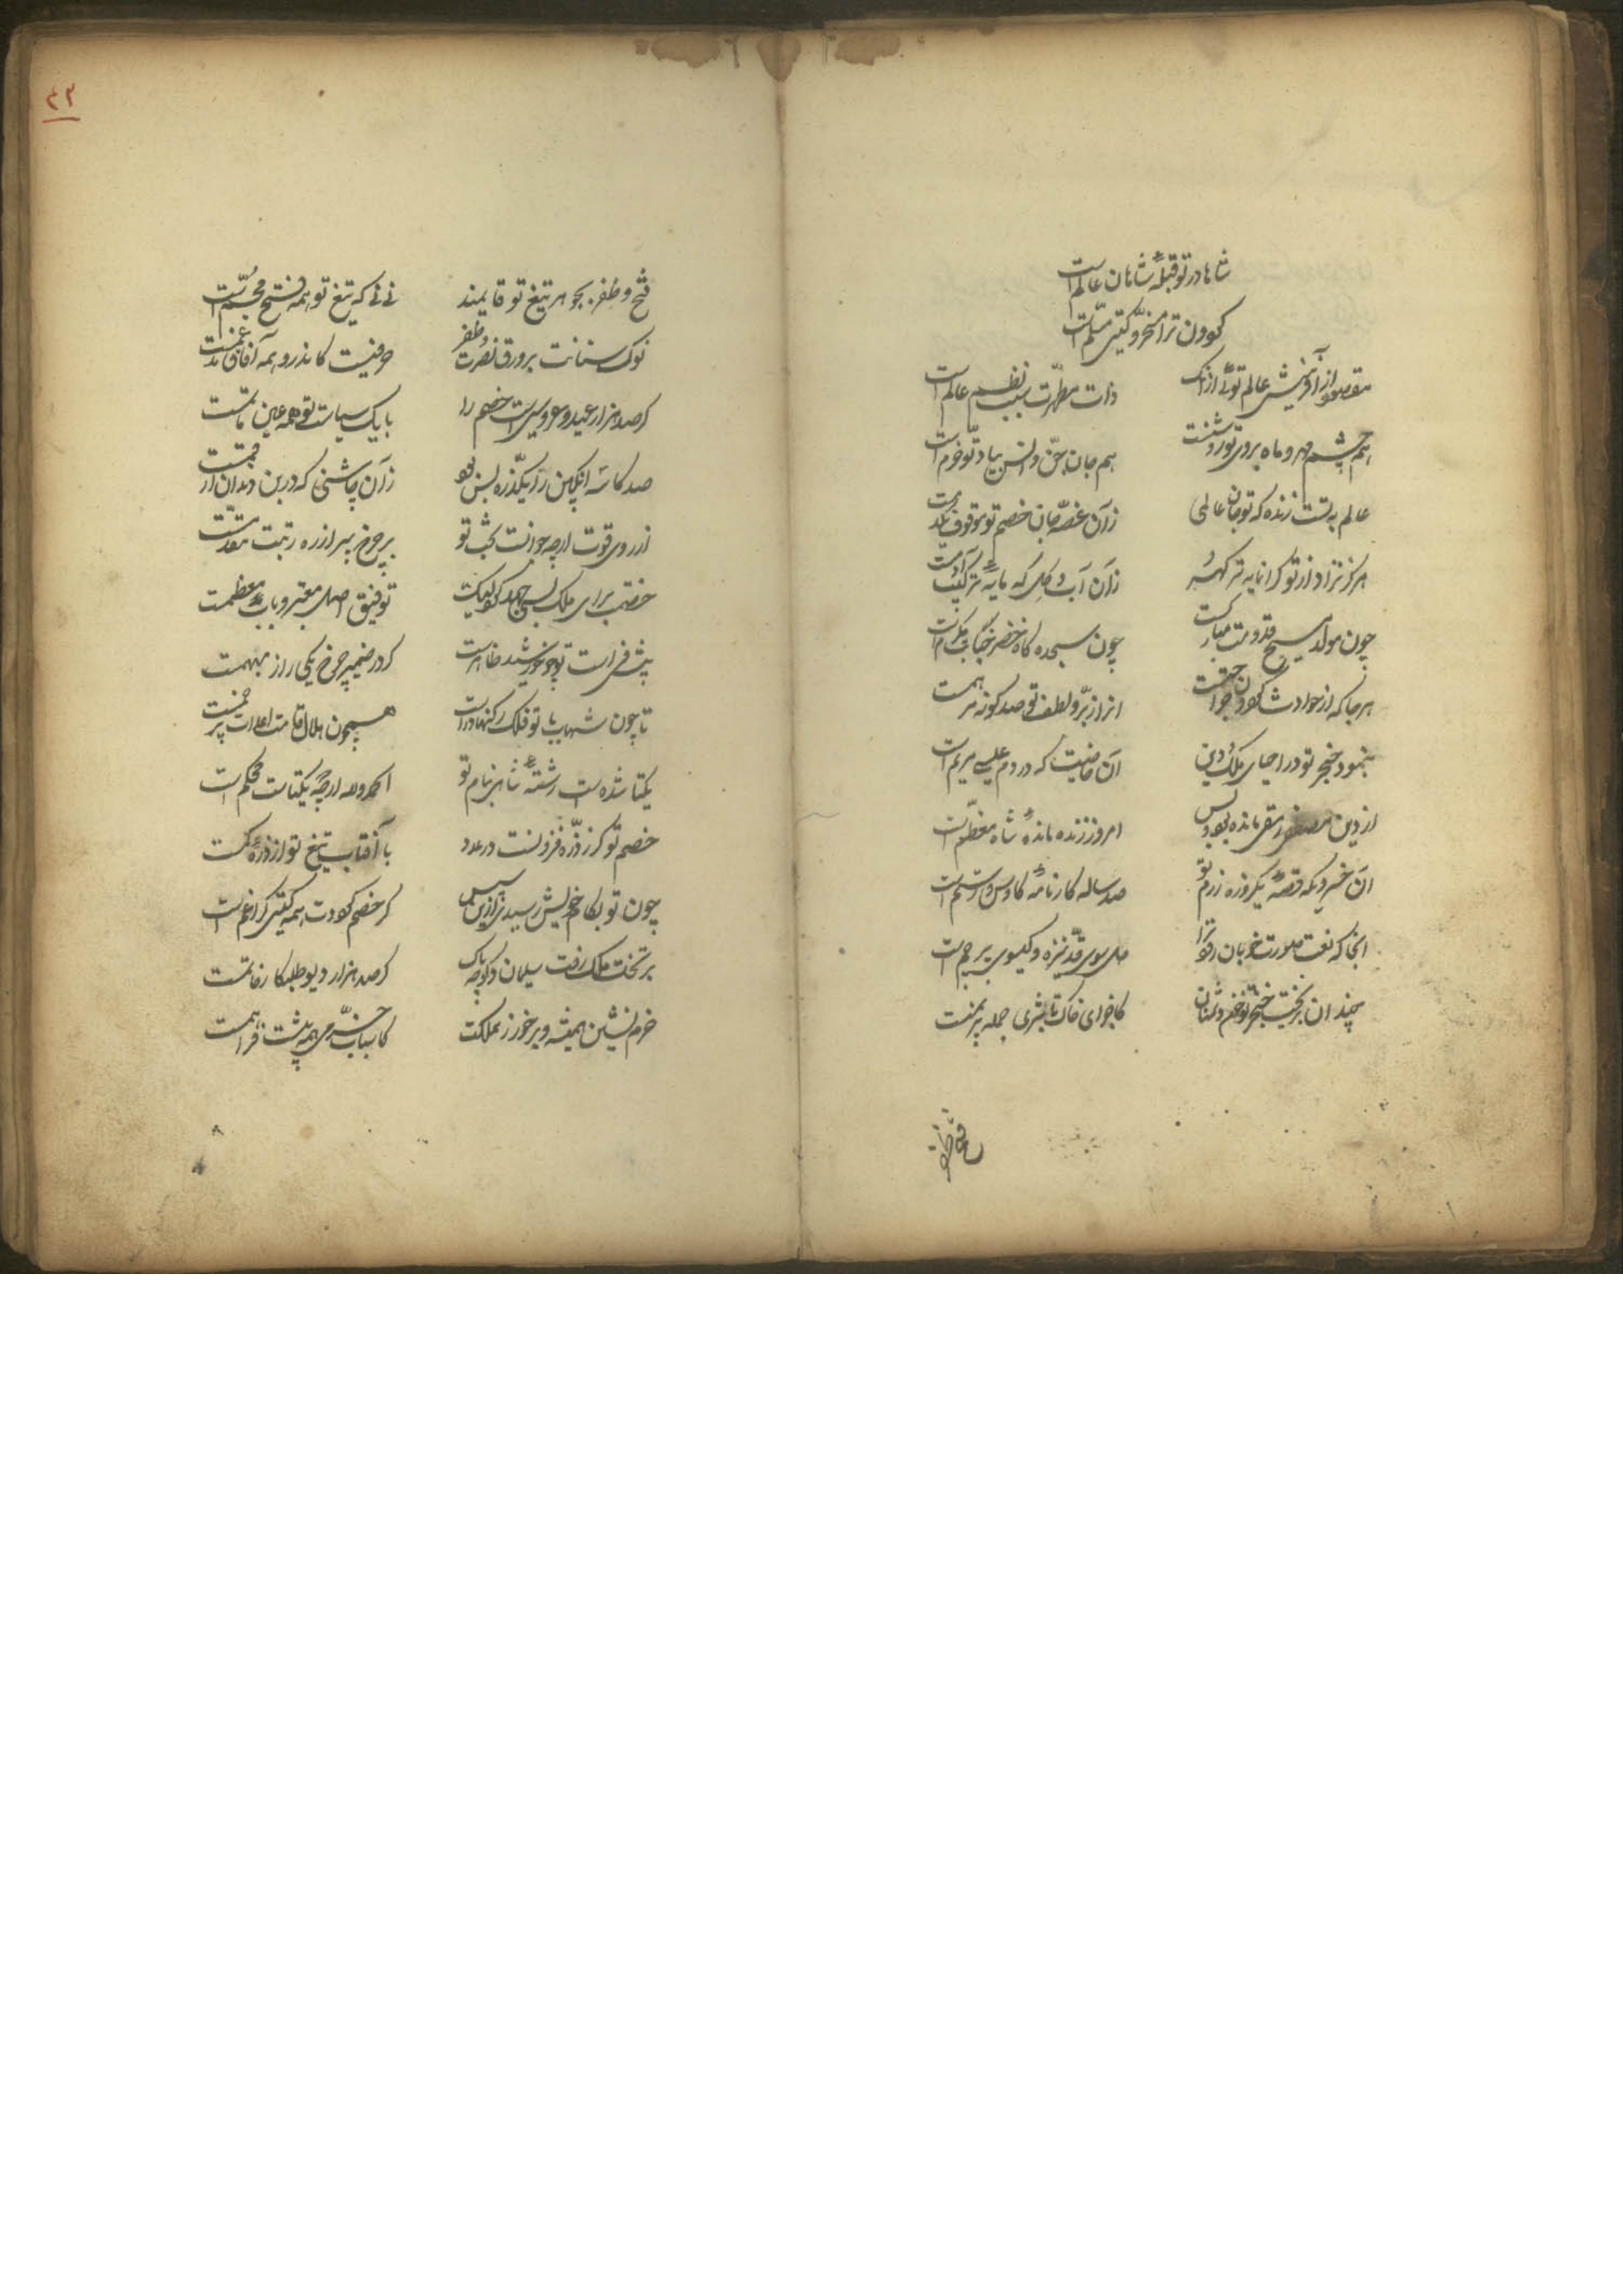 شاها در تو قبلهٔ شاهان عالم است
گردون ترا مسخر و گیتی مسلم است
مقصود از آفرینش عالم توئی از آنک
ذات مطهرت سبب نظم عالم است
هم چشم مهر و ماه بروی تو روشنست
هم جان جن و انس بیاد تو خرم است
عالم بتست زنده که تو جان عالمی
زان غصه جان خصم تو موقوف
هرگز نزاد از تو گرانمایه تر گهر
زان آب و گل که مایهٔ ترکیب آدمست
چون مولد مسیح قدومت مبارکست
چون سجده گاه خضر جنابت مکرم است
هرجا که از حوادث گردون جراحتست
انرا ز بر و لطف تو صد گونه مرهمست
بنمود خنجر تو در احیای ملک و دین
آن خاصیت که در دم عیسی مریم است
از دین مصطفی رمقی مانده بود و بس
امروز زنده ماندهٔ شاه معظم است
آن خسرویکه قصهٔ یکروزه رزم تو
صد ساله کارنامهٔ کاوس و رستم است
آنجا که نعت صورت خوبان رود ترا
میل سوی قد نیزه و گیسوی پرچم است
چندان بریخت خنجر تو خون دشمنان
کاجزای خاک تا بثری جمله پر نمست
فتح و ظفر
۴۳
فتح و ظفر بجوهر تیغ تو قایمند
نی نی که تیغ تو همه فتح مجسم است
نوک سنانت بر ورق نصرت و ظفر
حرفیست کاندرو همه آفاق مدغمست
گر صد هزار عید و عروسیست خصم را
با یک سیاست تو همه عین ماتمست
صد کاسه انگبین را یکذره بس بود
زان چاشنی که در بن دندان ارقمست
از روی قوت ارچه جوانست بخت تو
بر چرخ پیر از ره رتبت مقدمست
خصمت برای ملک بسی جهد کرد لیک
توفیق اصل معتبر و باب معظمست
پیش فراست تو چو خورشید ظاهرست
گر در ضمیر چرخ یکی راز مبهمست
تا چون شهاب با تو فلک رکنها دراست
همچون هلال قامت اعدات پر خمست
یکتا شده ست رشتهٔ شاهی بنام تو
الحمدلله ارچه یکتاست محکم است
خصم تو گر ز ذره فزونست در عدد
با آفتاب تیغ تو از ذرهٔ کمست
چون تو بکام خویش رسیدی ازین سپس
گر خصم گر دست همه گیتی کرا غم است
بر تخت ملک رفت سلیمان و گو چه باک
گر صد هزار دیو طلبکار خاتمست
خرم نشین همیشه و برخور ز مملکت
کاسباب خرمی همه پیشت فراهمست